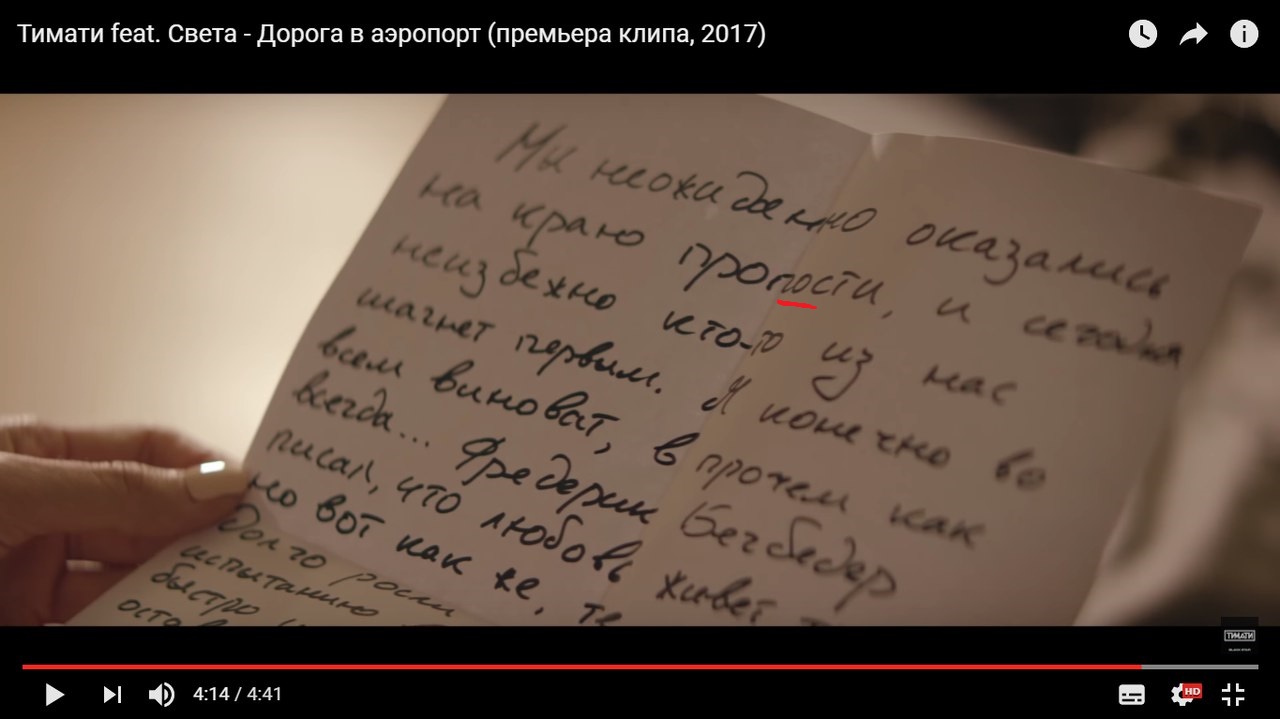 Тимати feat. Света - Дорога в аэропорт (премьера клипа, 2017)
Мы неожиданно оказались
на краю пропости, и сегодня
неизбежно кто-то из нас
шагнет первым. Я конечно во
всем виноват, в прочем как
всегда... Фредерик Бегбедер
писал, что любовь живет
но вот как же, те
Долго
испытанию
быстро
ТИМАТИ
BLACK STAR
4:14 / 4:41
HD